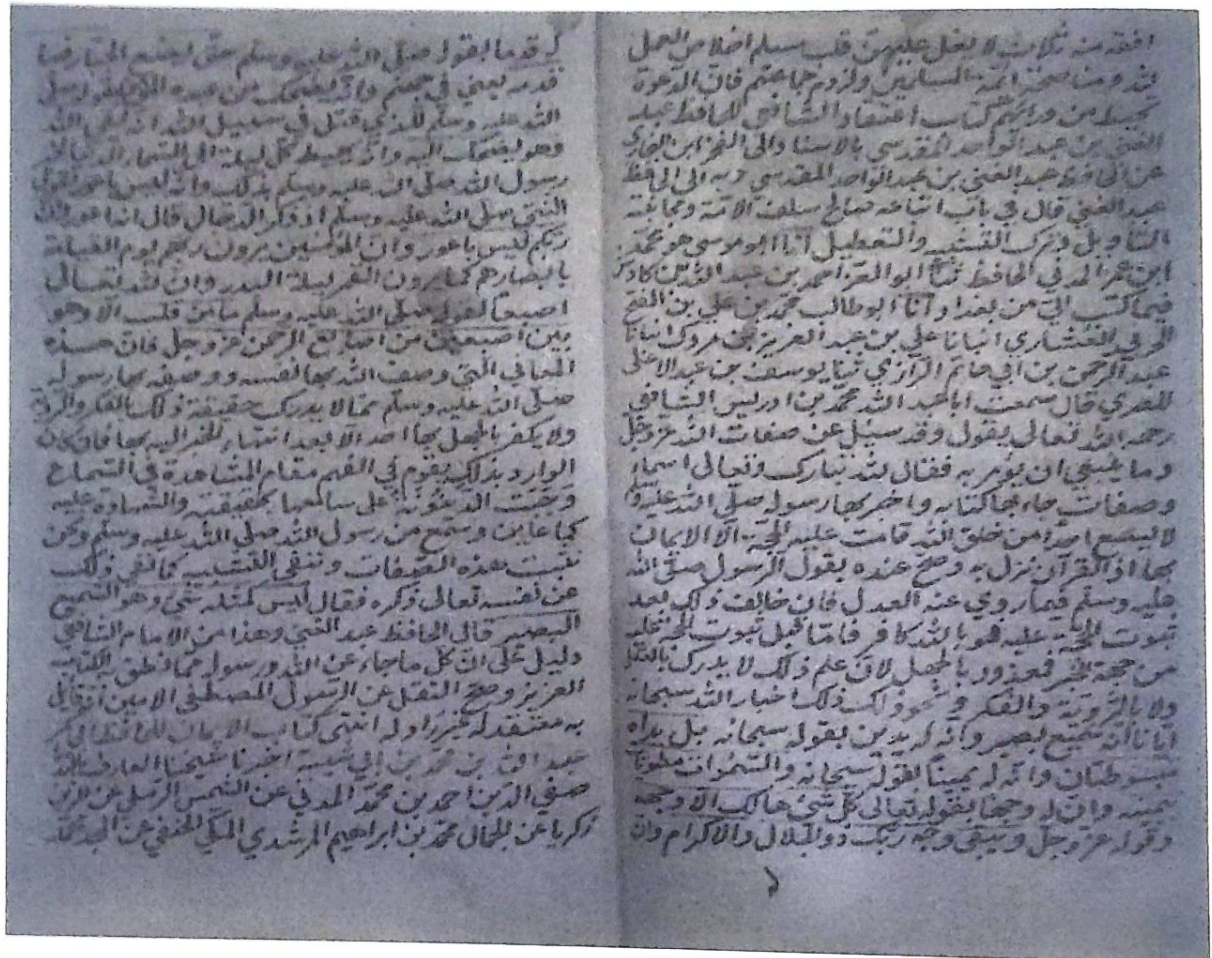 افقه منه ثلاث لا يغل عليهن قلب مسلم اخلاص العمل
لله ومناصحة ائمة المسلمين ولزوم جماعتهم فان الدعوة
تحيط من ورائهم كتاب اعتقاد الشافعي للحافظ عبد
الغني بن عبد الواحد المقدسي بالاسناد الى الفخر ابن البخاري
عن الحافظ عبد الغني بن عبد الواحد المقدسي وبه الى الحافظ
عبد الغني قال في باب اتباعه صالح سلف الامة ومجانبة
التاويل وترك التشبيه والتعطيل انا ابو موسى هو محمد
ابن عمر المدني الحافظ ابو العز احمد بن عبيد الله بن كادش
فيما كتب الي من بغداد وانا ابو طالب محمد بن علي بن الفتح
الحربي العشاري انبانا علي بن عبد العزيز بن مردك انبانا
عبد الرحمن بن ابي حاتم الرازي ثنا يوسف بن عبد الاعلى
المصري قال سمعت ابا عبد الله محمد بن ادريس الشافعي
رحمه الله تعالى يقول وقد سئل عن صفات الله عز وجل
وما ينبغي ان يومر به فقال لله تبارك وتعالى اسماء
وصفات جاء بها كتابه واخبر بها رسوله صلى الله عليه وسلم
لا يسع احدا من خلق الله قامت عليه الحجة الا الايمان
بها اذ القرآن نزل به وصح عنده بقول الرسول صلى الله
عليه وسلم فيما روي عنه العدل فان خالف ذلك بعد
ثبوت الحجة عليه فهو بالله كافر فاما قبل ثبوت الحجة عليه
من جهة الخبر فمعذور بالجهل لان علم ذلك لا يدرك بالعقل
ولا بالروية والفكر ونحو ذلك اخبار الله سبحانه
ايانا انه سميع بصير وانه له يدين بقوله سبحانه بل يداه
مبسوطتان وانه له يمينا بقوله سبحانه والسموات مطويات
بيمينه وان له وجها بقوله تعالى كل شئ هالك الا وجهه
وقوله عز وجل ويبقى وجه ربك ذو الجلال والاكرام وان
له قدما بقوله صلى الله عليه وسلم حتى يضع الجبار فيها
قدمه يعني في جهنم وانه يضحك من عبده
الله عليه وسلم للذي قتل في سبيل الله انه لقي الله
وهو يضحك اليه وانه يهبط كل ليلة الى السماء الدنيا
رسول الله صلى الله عليه وسلم بذلك وانه ليس باعور لقول
النبي صلى الله عليه وسلم اذ ذكر الدجال قال انه اعور وان
ربكم ليس باعور وان المؤمنين يرون ربهم يوم القيامة
بابصارهم كما يرون القمر ليلة البدر وان لله تعالى
اصبعا لقوله صلى الله عليه وسلم ما من قلب الا وهو
بين اصبعين من اصابع الرحمن عز وجل فان هذه
المعاني التي وصف الله بها نفسه ووصفه بها رسوله
صلى الله عليه وسلم مما لا يدرك حقيقة ذلك بالفكر والروية
ولا يكفر بالجهل بها احد الا بعد انتهاء الخبر اليه بها فان كان
الوارد بذلك يقوم في الفهم مقام المشاهدة في السماع
وجبت الدينونة على سامعها بحقيقته والشهادة عليه
كما عاين وسمع من رسول الله صلى الله عليه وسلم ولكن
نثبت هذه الصفات وننفي التشبيه كما نفى ذلك
عن نفسه تعالى ذكره فقال ليس كمثله شئ وهو السميع
البصير قال الحافظ عبد الغني وهذا من الامام الشافعي
دليل على ان كل ما جاء عن الله ورسوله مما نطق به الكتاب
العزيز وصح النقل عن الرسول المصطفى الامين
به معتقد له انتهى كتاب الايمان للحافظ ابي بكر
عبد الله بن محمد بن ابي شيبة اخبرنا شيخنا العارف بالله
صفي الدين احمد بن محمد المدني عن الشمس الرملي عن الزين
زكريا عن الجمال محمد بن ابراهيم المرشدي المكي الحنفي عن المجد محمد